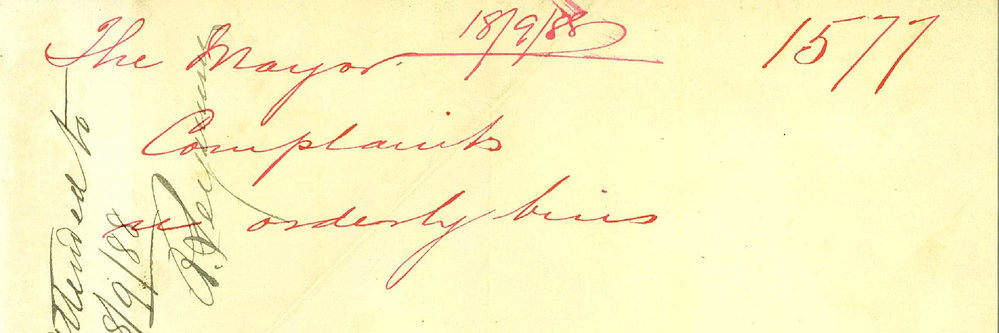 The Mayor. 18/9/88
1577
Complaints
re orderly bins
Attended to
18/9/88